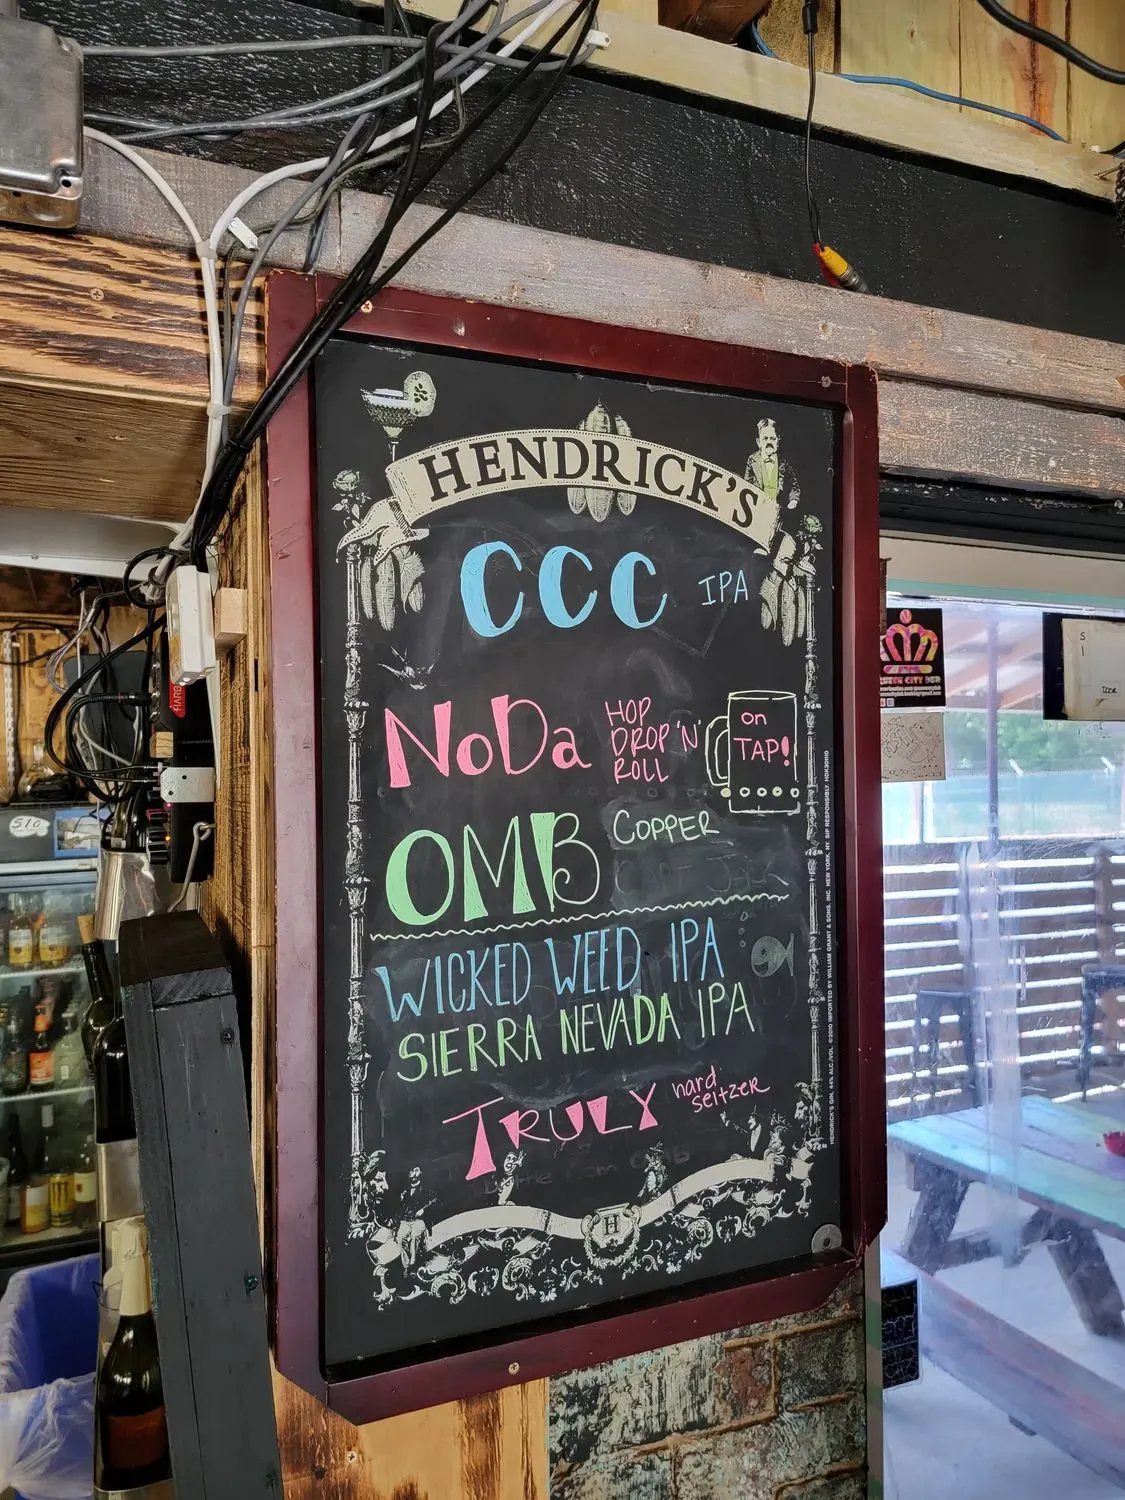 HENDRICK'S
CCC IPA
NoDa HOP
DROP 'N'
ROLL
on
TAP!
OMB COPPER
WICKED WEED IPA
SIERRA NEVADA IPA
TRULY hard
seltzer
H
HENDRICK'S GIN, 44% ALC./VOL. ©2010 IMPORTED BY WILLIAM GRANT & SONS, INC. NEW YORK, NY. SIP RESPONSIBLY.
510